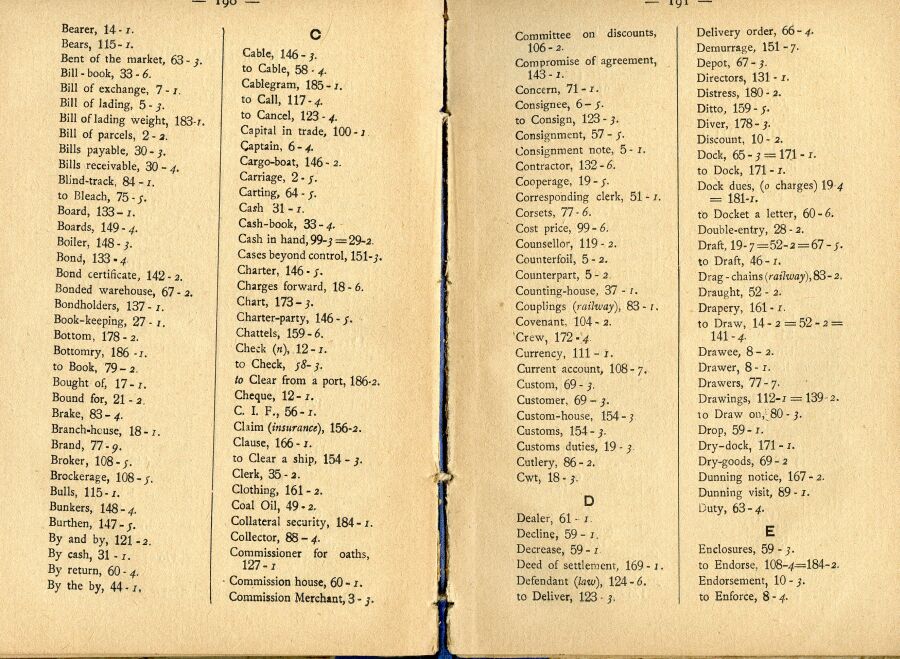 — 190 —
Bearer, 14 - 1.
Bears, 115 - 1.
Bent of the market, 63 - 3.
Bill - book, 33 - 6.
Bill of exchange, 7 - 1.
Bill of lading, 5 - 3.
Bill of lading weight, 183-1.
Bill of parcels, 2 - 2.
Bills payable, 30 - 3.
Bills receivable, 30 - 4.
Blind-track, 84 - 1.
to Bleach, 75 - 5.
Board, 133 - 1.
Boards, 149 - 4.
Boiler, 148 - 3.
Bond, 133 - 4
Bond certificate, 142 - 2.
Bonded warehouse, 67 - 2.
Bondholders, 137 - 1.
Book-keeping, 27 - 1.
Bottom, 178 - 2.
Bottomry, 186 - 1.
to Book, 79 - 2.
Bought of, 17 - 1.
Bound for, 21 - 2.
Brake, 83 - 4.
Branch-house, 18 - 1.
Brand, 77 - 9.
Broker, 108 - 5.
Brockerage, 108 - 5.
Bulls, 115 - 1.
Bunkers, 148 - 4.
Burthen, 147 - 5.
By and by, 121 - 2.
By cash, 31 - 1.
By return, 60 - 4.
By the by, 44 - 1,
C
Cable, 146 - 3.
to Cable, 58 - 4.
Cablegram, 185 - 1.
to Call, 117 - 4.
to Cancel, 123 - 4.
Capital in trade, 100 - 1
Captain, 6 - 4.
Cargo-boat, 146 - 2.
Carriage, 2 - 5.
Carting, 64 - 5.
Cash 31 - 1.
Cash-book, 33 - 4.
Cash in hand, 99-3 = 29-2.
Cases beyond control, 151-3.
Charter, 146 - 5.
Charges forward, 18 - 6.
Chart, 173 - 3.
Charter-party, 146 - 5.
Chattels, 159 - 6.
Check (n), 12 - 1.
to Check, 58 - 3.
to Clear from a port, 186-2.
Cheque, 12 - 1.
C. I. F., 56 - 1.
Claim (insurance), 156-2.
Clause, 166 - 1.
to Clear a ship, 154 - 3.
Clerk, 35 - 2.
Clothing, 161 - 2.
Coal Oil, 49 - 2.
Collateral security, 184 - 1.
Collector, 88 - 4.
Commissioner for oaths,
127 - 1
Commission house, 60 - 1.
Commission Merchant, 3 - 3.
— 191 —
Committee on discounts,
106 - 2.
Compromise of agreement,
143 - 1.
Concern, 71 - 1.
Consignee, 6 - 5.
to Consign, 123 - 3.
Consignment, 57 - 5.
Consignment note, 5 - 1.
Contractor, 132 - 6.
Cooperage, 19 - 5.
Corresponding clerk, 51 - 1.
Corsets, 77 - 6.
Cost price, 99 - 6.
Counsellor, 119 - 2.
Counterfoil, 5 - 2.
Counterpart, 5 - 2
Counting-house, 37 - 1.
Couplings (railway), 83 - 1.
Covenant, 104 - 2.
Crew, 172 - 4
Currency, 111 - 1.
Current account, 108 - 7.
Custom, 69 - 3.
Customer, 69 - 3.
Custom-house, 154 - 3
Customs, 154 - 3.
Customs duties, 19 - 3
Cutlery, 86 - 2.
Cwt, 18 - 3.
D
Dealer, 61 - 1
Decline, 59 - 1.
Decrease, 59 - 1
Deed of settlement, 169 - 1.
Defendant (law), 124 - 6.
to Deliver, 123 - 3.
Delivery order, 66 - 4.
Demurrage, 151 - 7.
Depot, 67 - 3.
Directors, 131 - 1.
Distress, 180 - 2.
Ditto, 159 - 5.
Diver, 178 - 3.
Discount, 10 - 2.
Dock, 65 - 3 = 171 - 1.
to Dock, 171 - 1.
Dock dues, (o charges) 19 4
= 181-1.
to Docket a letter, 60 - 6.
Double-entry, 28 - 2.
Draft, 19 - 7 = 52 - 2 = 67 - 5.
to Draft, 46 - 1.
Drag - chains (railway), 83 - 2.
Draught, 52 - 2.
Drapery, 161 - 1.
to Draw, 14 - 2 = 52 - 2 =
141 - 4.
Drawee, 8 - 2.
Drawer, 8 - 1.
Drawers, 77 - 7.
Drawings, 112-1 = 139 - 2.
to Draw on, 80 - 3.
Drop, 59 - 1.
Dry-dock, 171 - 1.
Dry-goods, 69 - 2
Dunning notice, 167 - 2.
Dunning visit, 89 - 1.
Duty, 63 - 4.
E
Enclosures, 59 - 3.
to Endorse, 108-4=184-2.
Endorsement, 10 - 3.
to Enforce, 8 - 4.